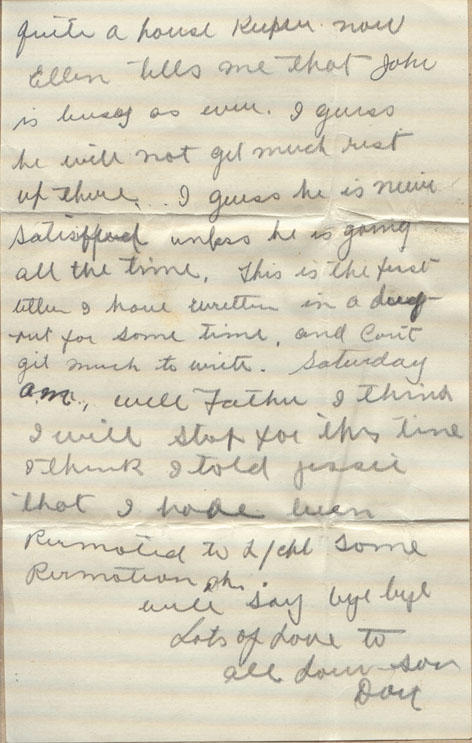 quite a house Keeper now
Ellen tells me that John
is busy as ever. I guess
he will not get much rest
up there. I guess he is never
satisfied unless he is going
all the time. This is the first
letter I have written in a dug-
out for some time, and Can't
get much to write. Saturday
a.m., well Father I think
I will stop for this time
I think I told Jessie
that I have been
Permoted to L/Cpl some
Permotion eh.
will say bye bye
Lots of Love to
all Your son